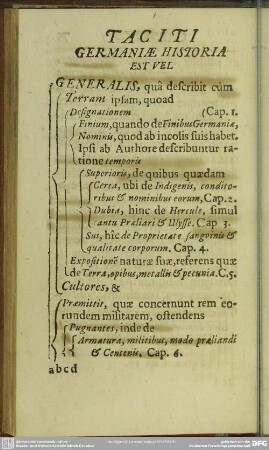 TACITI
GERMANIÆ HISTORIA
EST VEL
GENERALIS, quâ describit cùm
Terram ipsam, quoad
Designationem (Cap. 1.
Finium, quando de Finibus Germaniæ,
Nominis, quod ab incolis suis habet.
Ipsi ab Authore describuntur ra-
tione temporis
Superioris, de quibus quædam
Certa, ubi de Indigenis, condito-
ribus & nominibus eorum, Cap. 2.
Dubia, hinc de Hercule, simul
antu Præliari & Ulysse. Cap 3.
Sui, hîc de Proprietate sangvinis &
qualitate corporum. Cap. 4.
Expositionẽ naturæ suæ, referens quæ
de Terra, opibus, metallis & pecunia. C. 5.
Cultores, &
Præmittit, quæ concernunt rem eo-
rundem militarem, ostendens
Pugnantes, inde de
Armatura, militibus, modo præliandi
& Centenis. Cap. 6.
abcd